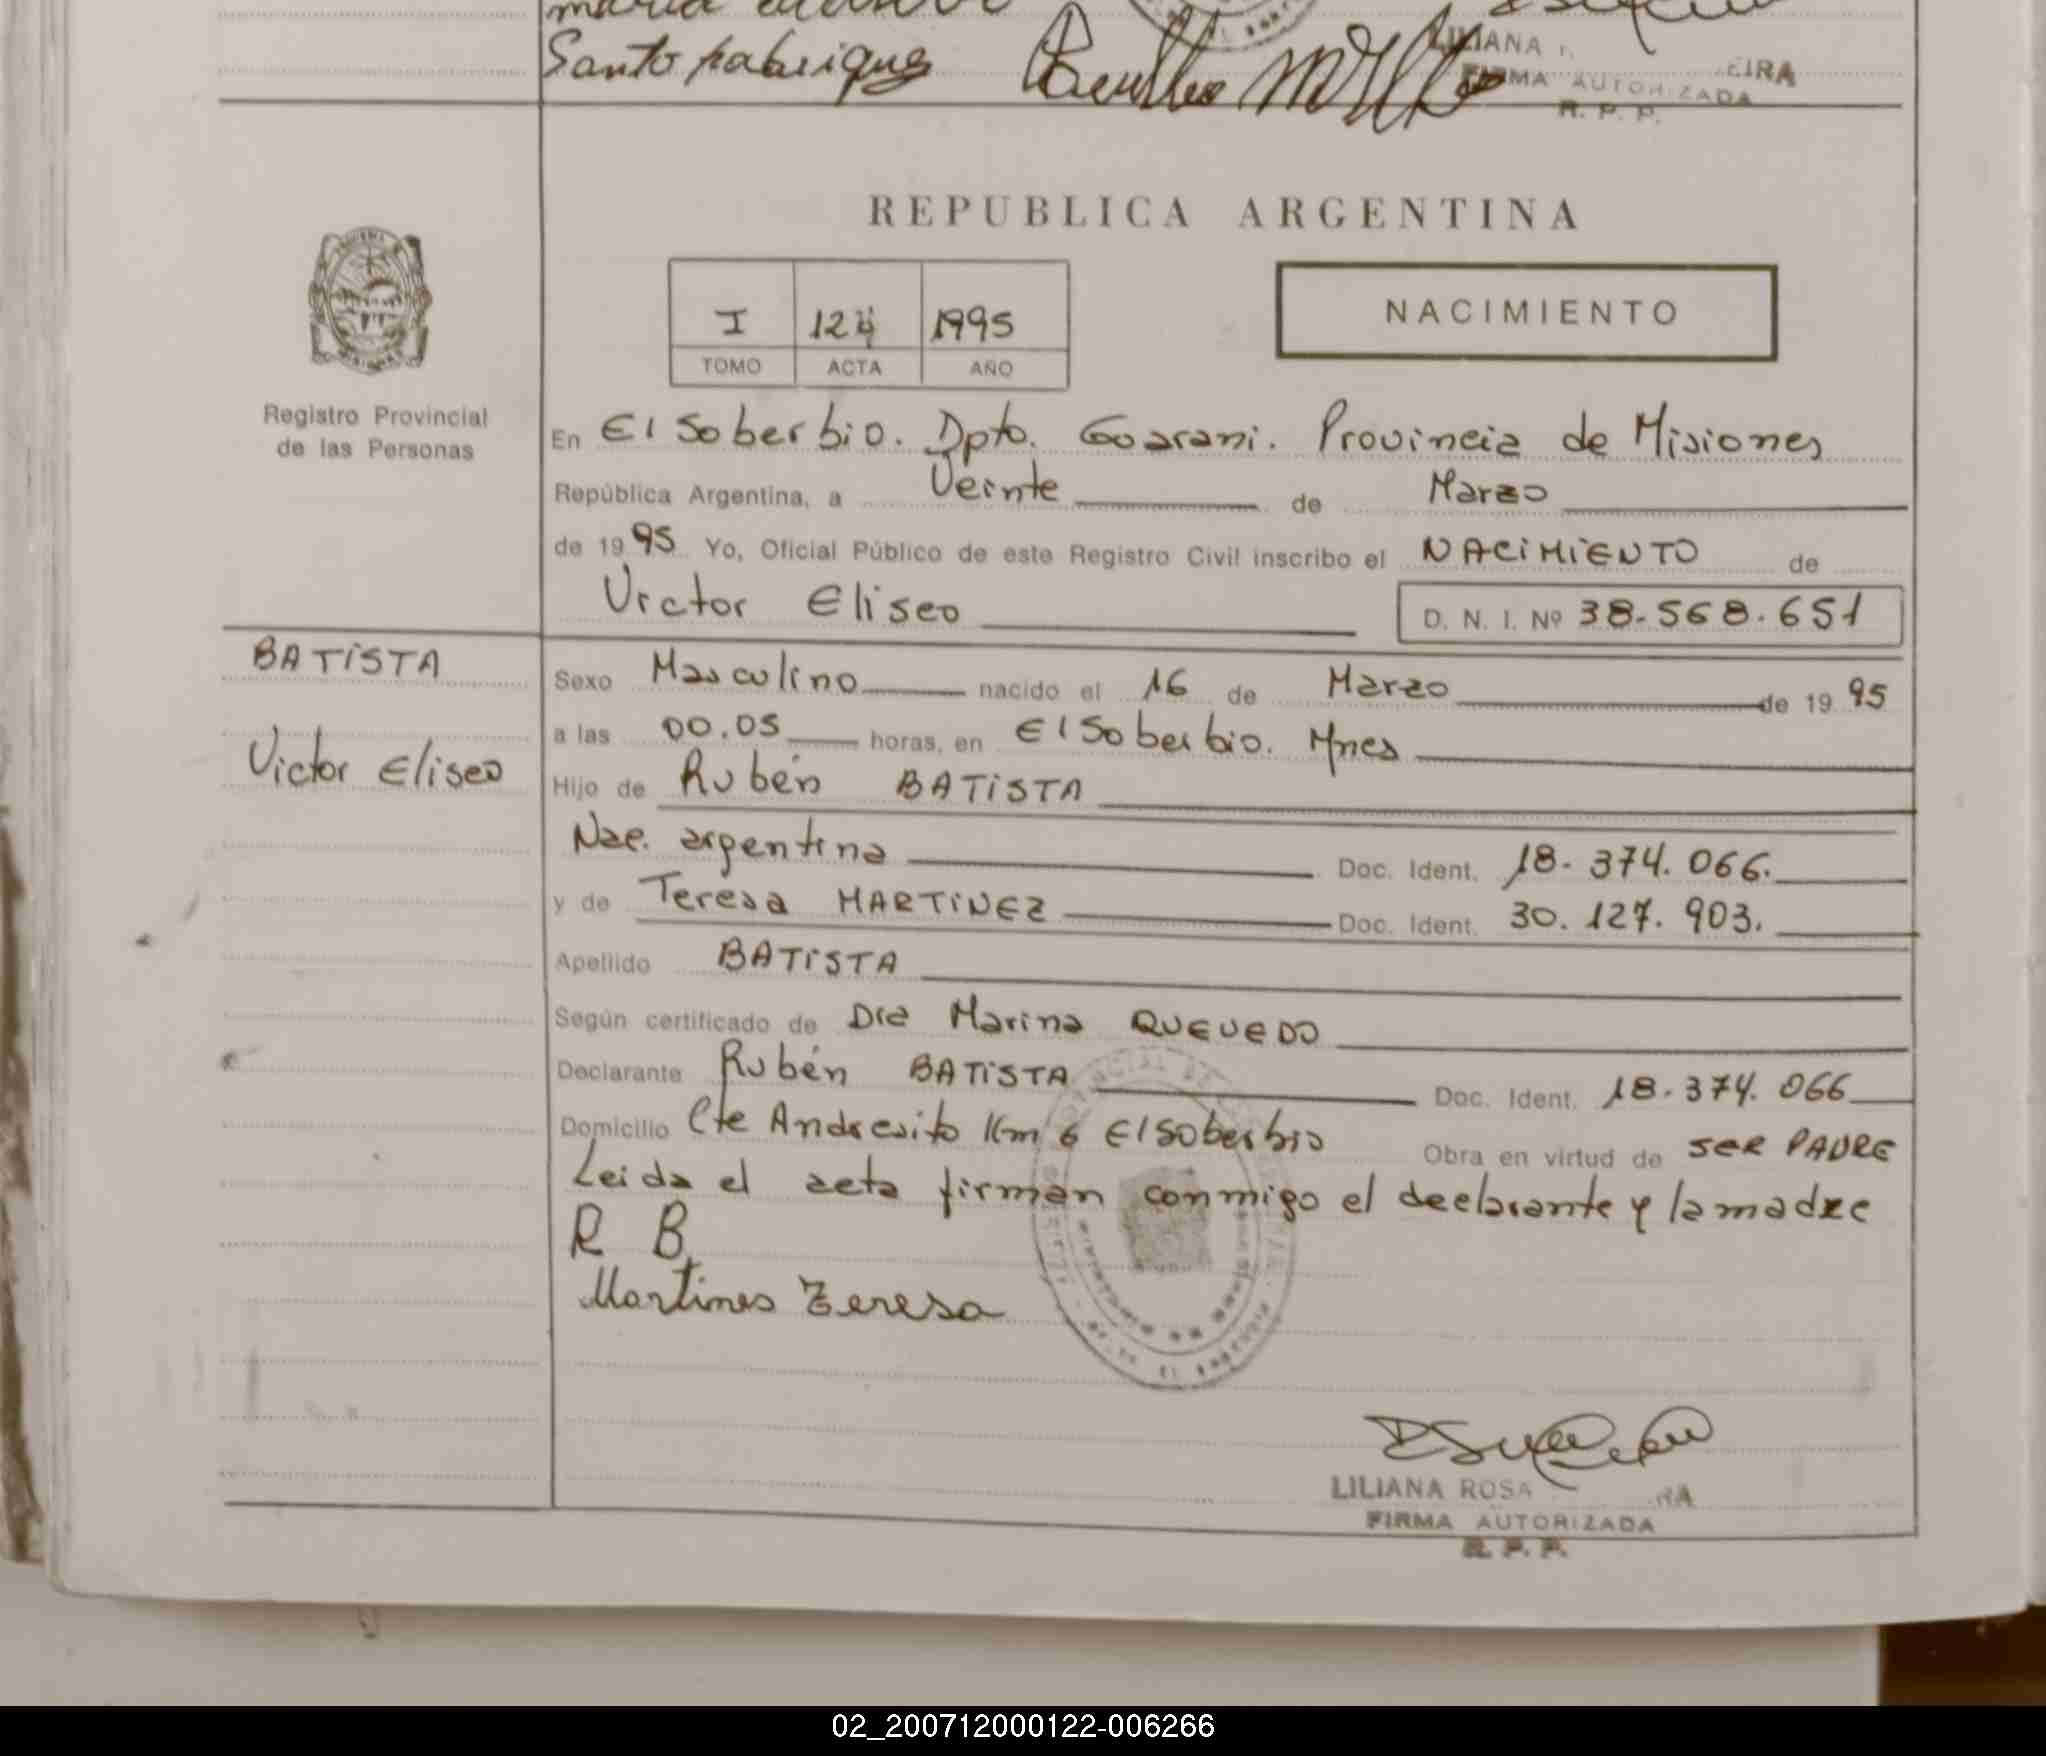 Santo
LILIANA
EIRA
FIRMA AUTORIZADA
R. P. P.
REPUBLICA ARGENTINA
I 124 1995
TOMO ACTA AÑO
NACIMIENTO
Registro Provincial
de las Personas
En El Soberbio. Dpto. Guarani. Provincia de Misiones
República Argentina, a Veinte de Marzo
de 1995 Yo, Oficial Público de este Registro Civil inscribo el NACIMIENTO de
Victor Eliseo D. N. I. Nº 38.568.651
BATISTA
Victor Eliseo
Sexo Masculino nacido el 16 de Marzo de 1995
a las 00.05 horas, en El Soberbio. Mnes
Hijo de Rubén BATISTA
Nac. argentina Doc. Ident. 18.374.066.
y de Teresa MARTINEZ Doc. Ident. 30.127.903.
Apellido BATISTA
Según certificado de Dra Marina QUEVEDO
Declarante Rubén BATISTA Doc. Ident. 18.374.066
Domicilio Cte Andresito Km 6 El Soberbio Obra en virtud de SER PADRE
Leida el acta firman conmigo el declarante y la madre
R B
Martines Teresa
LILIANA ROSA RA
FIRMA AUTORIZADA
R. P. P.
02_200712000122-006266